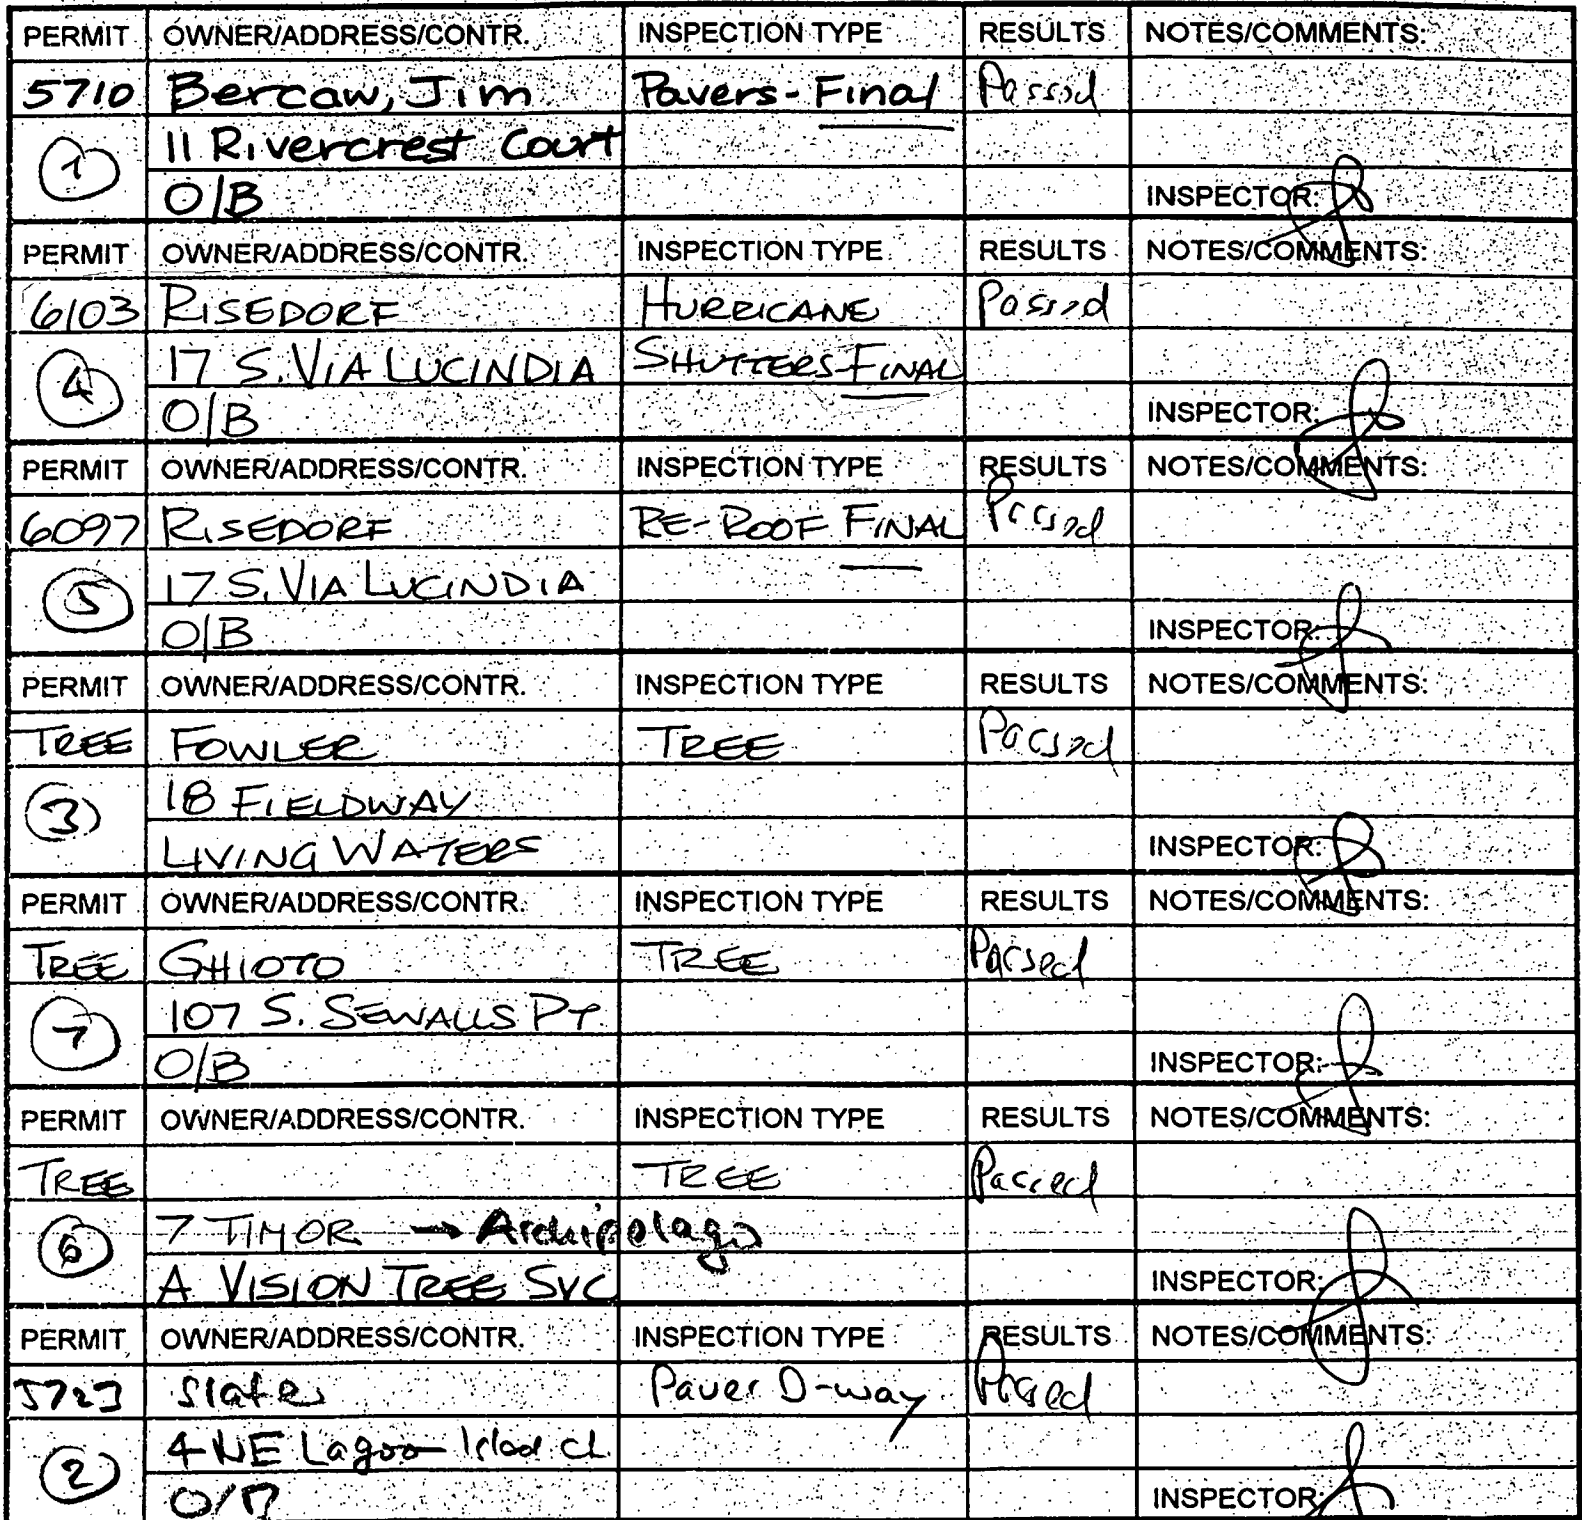 PERMIT OWNER/ADDRESS/CONTR. INSPECTION TYPE RESULTS NOTES/COMMENTS:
5710 Bercaw, Jim Pavers-Final Passed
1 11 Rivercrest Court
O/B INSPECTOR:
PERMIT OWNER/ADDRESS/CONTR. INSPECTION TYPE RESULTS NOTES/COMMENTS:
6103 RISEDORF HURRICANE Passed
4 17 S. VIA LUCINDIA SHUTTERS-FINAL
O/B INSPECTOR:
PERMIT OWNER/ADDRESS/CONTR. INSPECTION TYPE RESULTS NOTES/COMMENTS:
6097 RISEDORF RE-ROOF FINAL Passed
5 17 S. VIA LUCINDIA
O/B INSPECTOR:
PERMIT OWNER/ADDRESS/CONTR. INSPECTION TYPE RESULTS NOTES/COMMENTS:
TREE FOWLER TREE Passed
3 18 FIELDWAY
LIVING WATERS INSPECTOR:
PERMIT OWNER/ADDRESS/CONTR. INSPECTION TYPE RESULTS NOTES/COMMENTS:
TREE GHIOTO TREE Passed
7 107 S. SEWALLS PT.
O/B INSPECTOR:
PERMIT OWNER/ADDRESS/CONTR. INSPECTION TYPE RESULTS NOTES/COMMENTS:
TREE TREE Passed
6 7 TIMOR → Archipelago
A VISION TREE SVC INSPECTOR:
PERMIT OWNER/ADDRESS/CONTR. INSPECTION TYPE RESULTS NOTES/COMMENTS:
5723 Slater Paver D-way Passed
2 4 NE Lagoon Island Ct
O/B INSPECTOR: